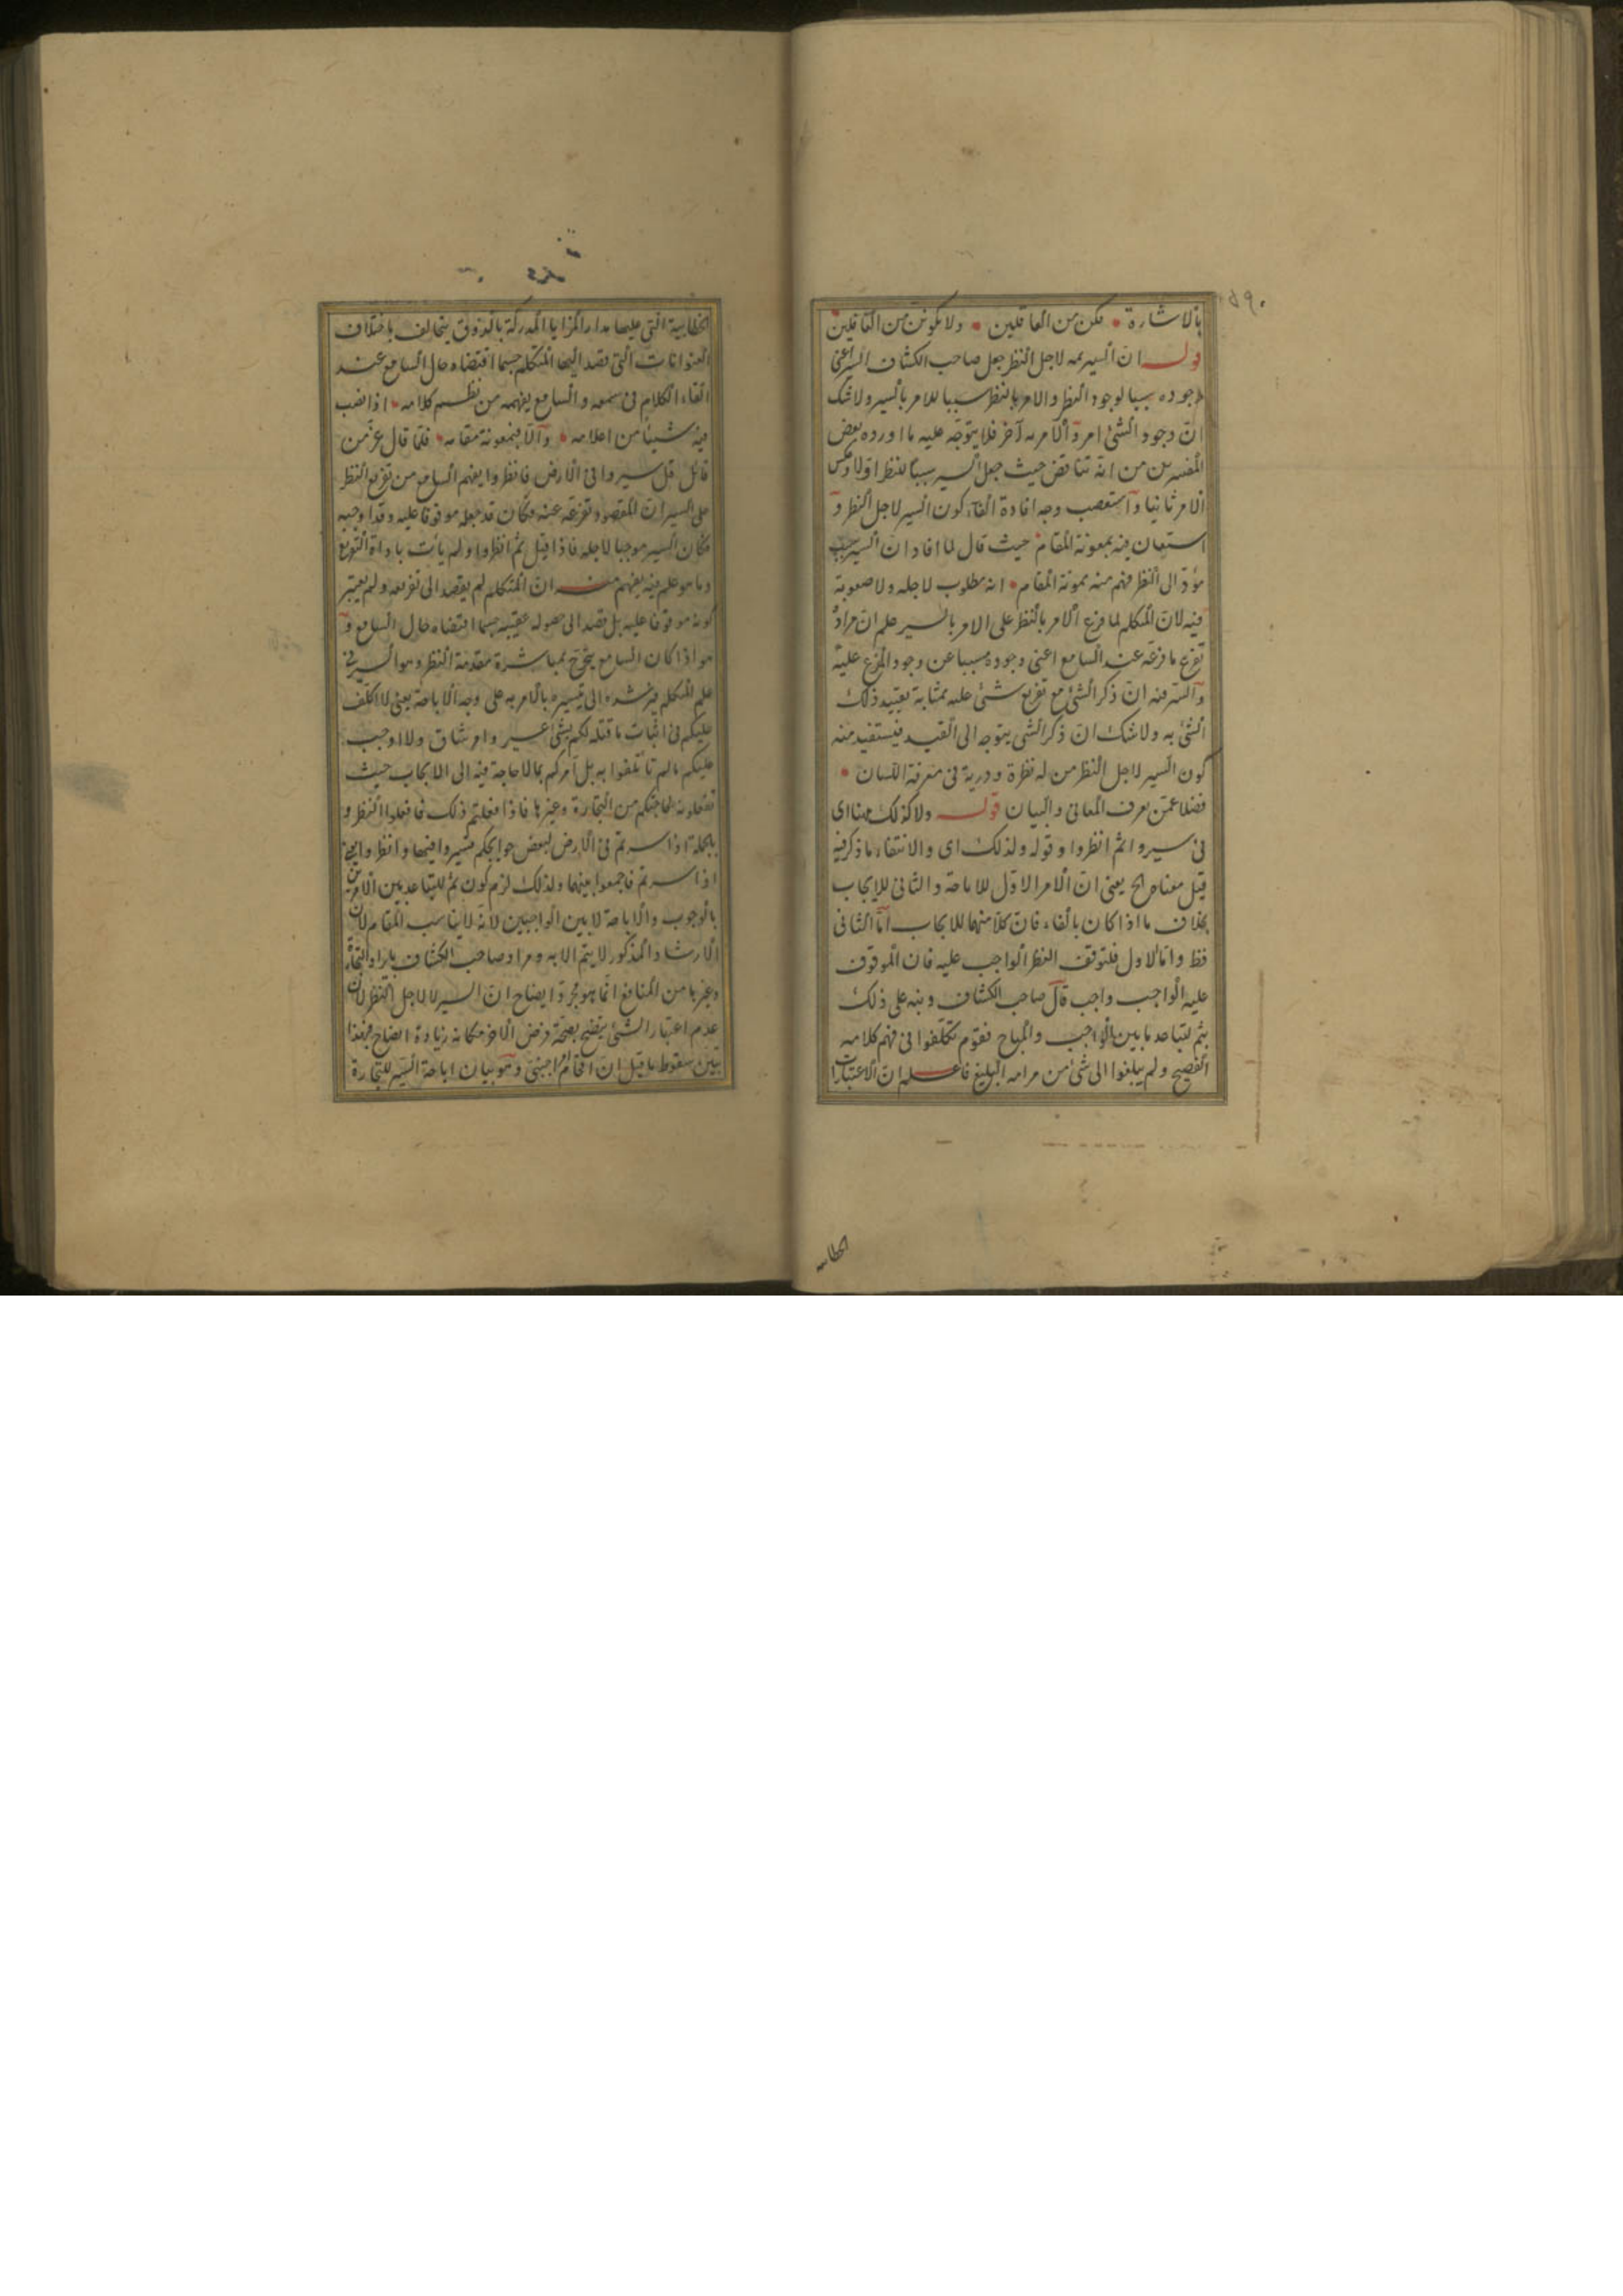 بالاشارة فكن من العاقلين ولا تكونن من الغافلين
قوله ان السير ثمه لاجل النظر جعل صاحب الكشاف السير اعنى
وجوده سببا لوجود النظر والامر بالنظر سببا للامر بالسير ولا شك
ان وجود الشئ امر والامر به آخر فلا يتوجه عليه ما اورده بعض
المفسرين من انه تناقض حيث جعل السير سببا للنظر اولا وعكس
الامر ثانيا واستصعب وجه افادة الفاء كون السير لاجل النظر و
استعان فيه بمعونة المقام حيث قال لما افاد ان السير سبب
مؤد الى النظر فهم منه بمونة المقام انه مطلوب لاجله ولا صعوبة
فيه لان المتكلم لما فرع الامر بالنظر على الامر بالسير علم ان مراده
تفرع ما فرعه عند السامع اعنى وجوده مسببا عن وجود المفرع عليه
والسر فيه ان ذكر الشئ مع تفريع شئ عليه بمثابة تقييد ذلك
الشئ به ولا شك ان ذكر الشى يتوجه الى القيد فيستفيد منه
كون السير لاجل النظر من له نظرة ودرية فى معرفة اللسان
فضلا عمن يعرف المعانى والبيان قوله ولا كذلك ههنا اى
فى سيروا ثم انظروا وقوله ولذلك اى والانتفاء ما ذكر فيه
قيل معناه الخ يعنى ان الامر الاول للاباحة والثانى للايجاب
بخلاف ما اذا كان بالفاء فان كلا منهما للايجاب اما الثانى
فظ واما الاول فلتوقف النظر الواجب عليه فان الموقوف
عليه الواجب واجب قال صاحب الكشاف ونبه على ذلك
بثم لتباعد ما بين الواجب والمباح فقوم تكلفوا فى فهم كلامه
الفصيح ولم يبلغوا الى شئ من مرامه البليغ فاعلم ان الاعتبارات
الخطابية
الخطابية التى عليها مدار المزايا المدركة بالذوق يتخالف باختلاف
العنوانات التى قصد اليها المتكلم حسبما اقتضاه حال السامع عند
القاء الكلام فى سمعه والسامع يفهمه من نظم كلامه اذا نصب
فيه شيئا من اعلامه والا فبمعونة مقامه فلما قال عز من
قائل قل سيروا فى الارض فانظروا يفهم السامع من تفريع النظر
على السير ان المقصود تفرعه عنه فكان قد جعله موقوفا عليه وقد اوجبه
فكان السير موجبا لاجله فاذا قيل ثم انظروا ولم يأت باداة التفريع
وما هو علم فيه يفهم منه ان المتكلم لم يقصد الى تفريعه ولم يعتبر
كونه موقوفا عليه بل قصد الى حصوله عقيبه حسبما اقتضاه حال السامع و
هو اذا كان السامع يتحرج بمباشرة مقدمة النظر وهو السير فى
علم المتكلم فيرشده الى تيسيره بالامر به على وجه الاباحة يعنى لا اكلف
عليكم فى اثبات ما قتله لكم بشئ عسير وامر شاق ولا اوجب
عليكم ما لم تألفوا به بل آمركم بما لا حاجة فيه الى الايجاب حيث
تفعلونه لحاجتكم من التجارة وغيرها فاذا فعلتم ذلك فافعلوا النظر و
بالجملة اذا سرتم فى الارض لبعض حوايجكم فسيروا فيها وانظروا يعنى
اذا سرتم فاجمعوا بينهما ولذلك لزم كون ثم للتباعد بين الامرين
بالوجوب والاباحة لا بين الواجبين لانه لا يناسب المقام لان
الارشاد المذكور لا يتم الا به ومراد صاحب الكشاف بايراد التجارة
وغيرها من المنافع انما هو مجرد ايضاح ان السير لا لاجل النظر لان
عدم اعتبار الشئ يتضح بصحة فرض الاخر مكانه زيادة ايضاح فبهذا
تبين سقوط ما قيل ان اقحام اجنبى وهو بيان اباحة السير للتجارة